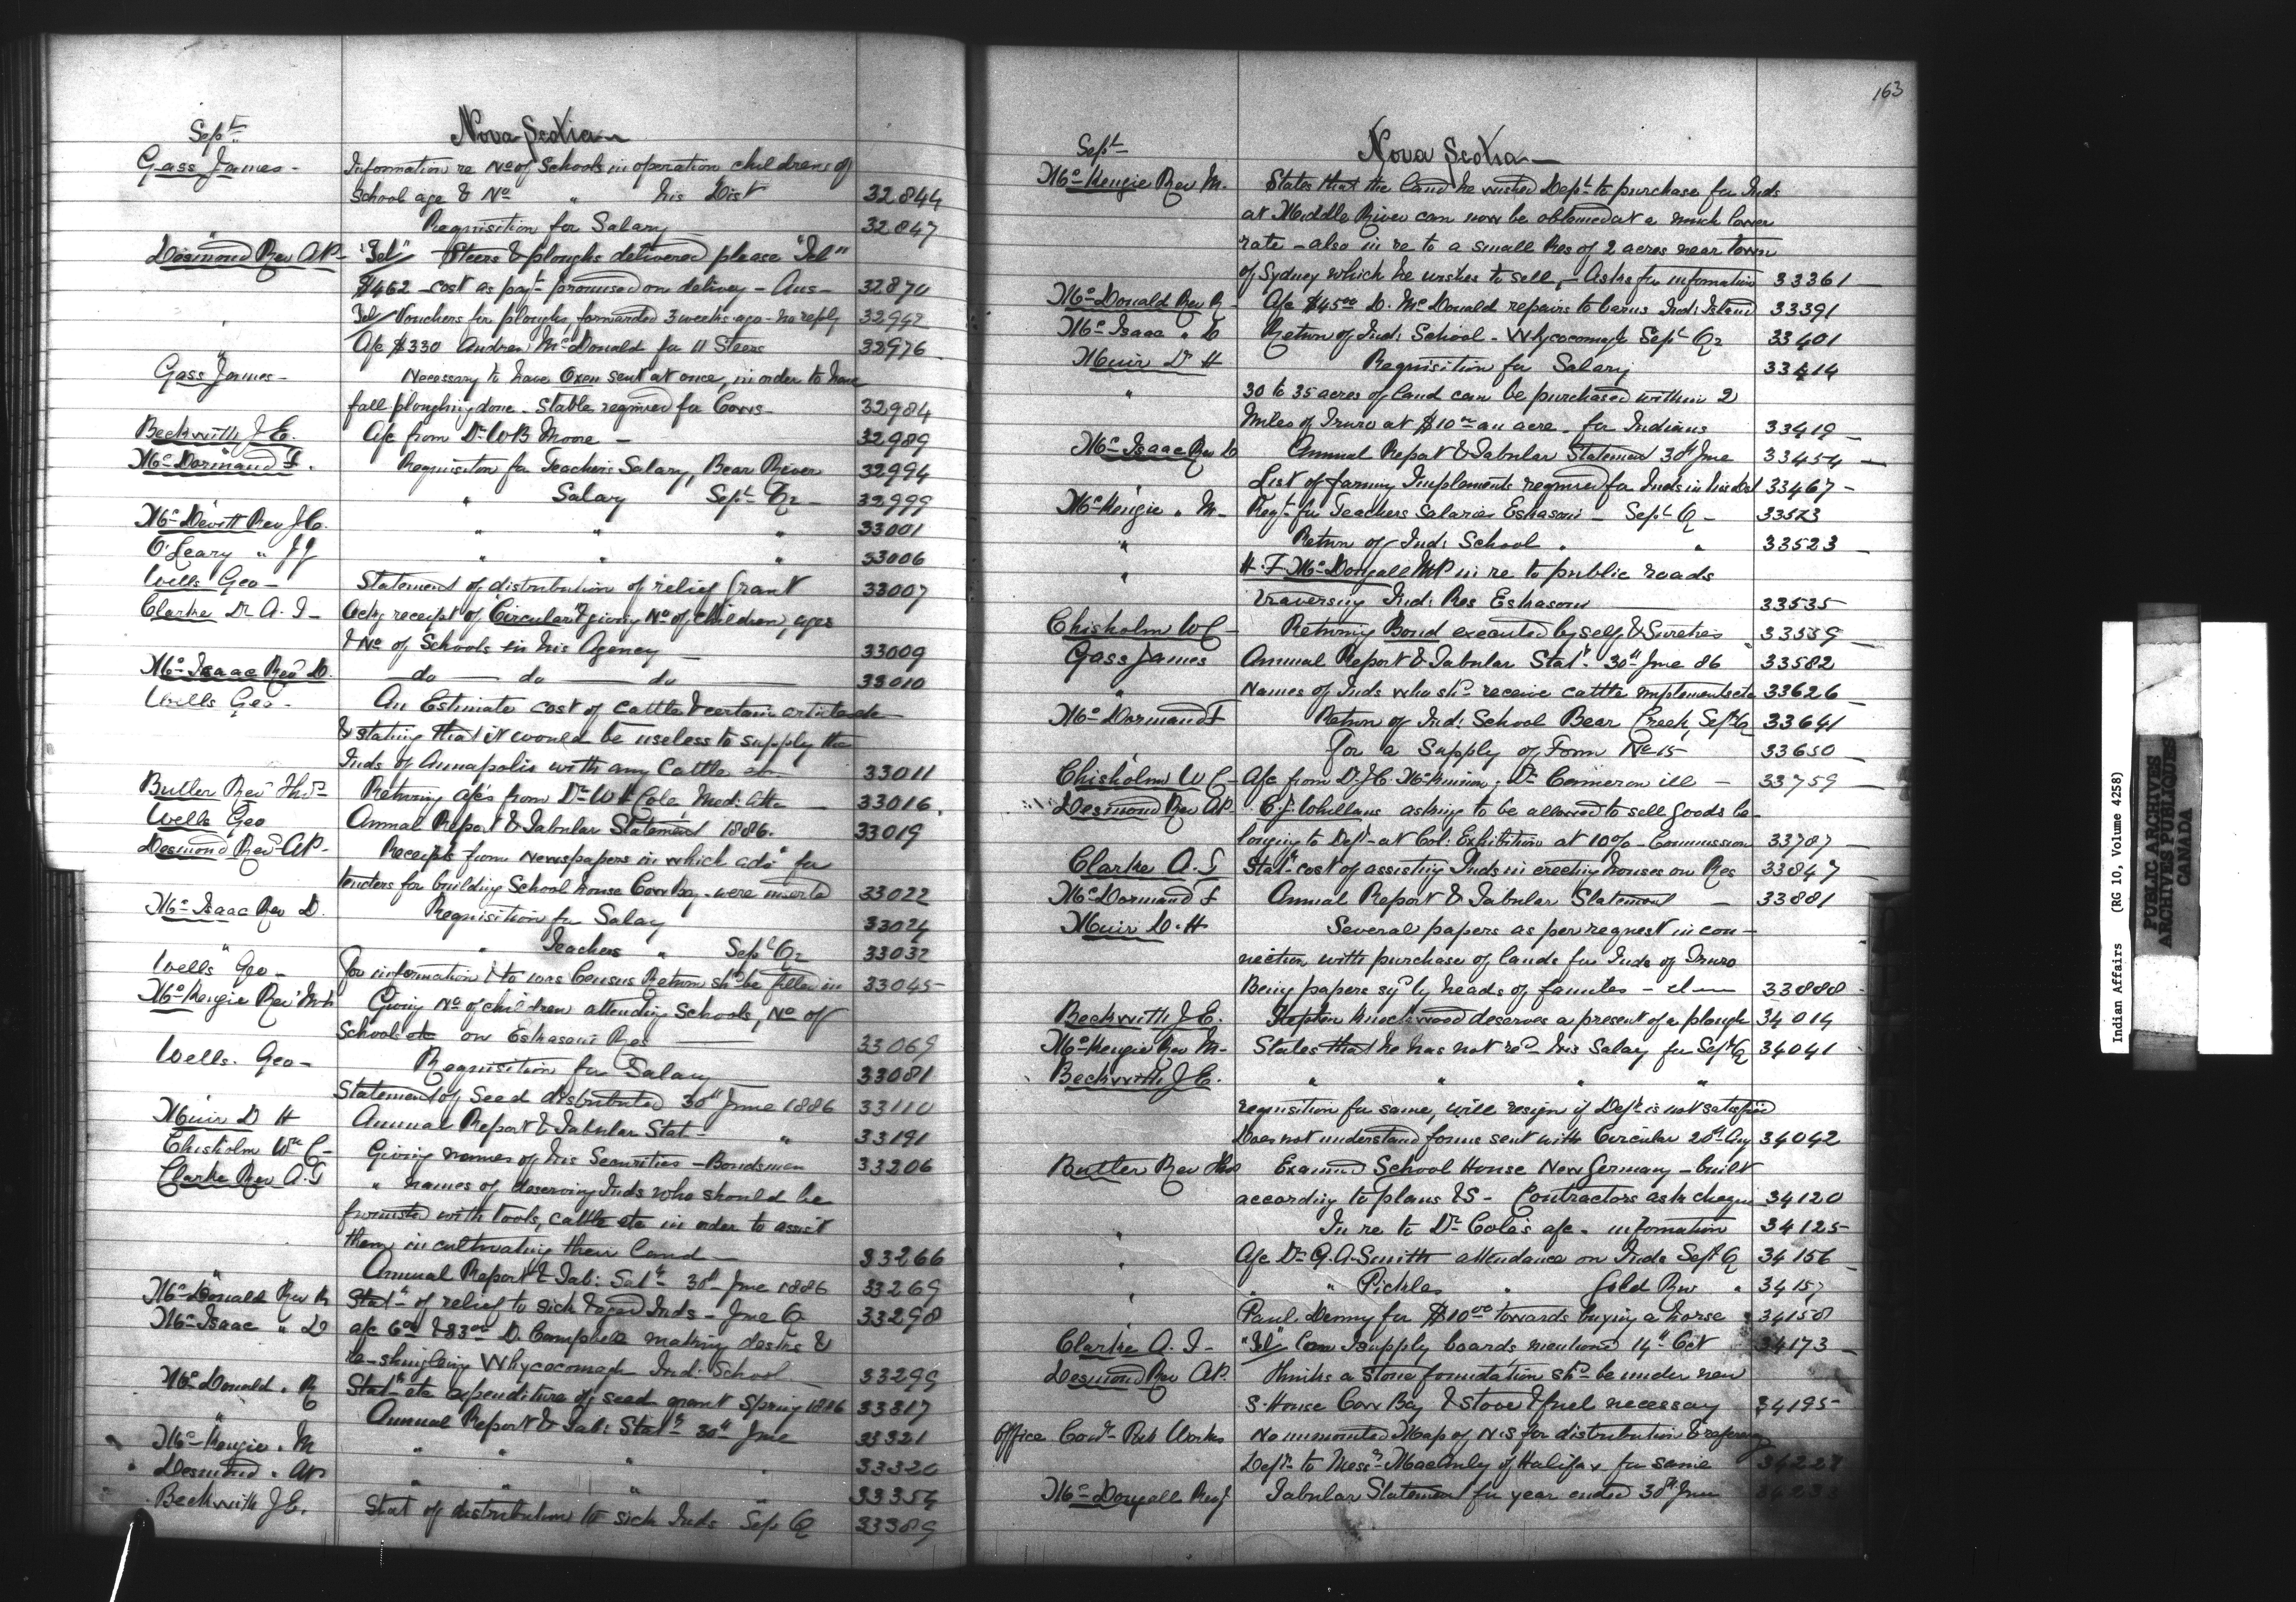 Sept
Nova Scotia
Gass James - Information re No of Schools in operation children of
School age & No " his Dist 32844
" Requisition for Salary 32847
Desmond Rev AP - "Tel" Steers & ploughs delivered please "Tel"
$462 - cost as payt promised on delivery - Ans - 32870
" Tel/ Vouchers for ploughs, forwarded 3 weeks ago - no reply 32942
" A/c $330 Andrew McDonald for 11 Steers 32976
Gass James - Necessary to have Oxen sent at once, in order to have
fall ploughing done. Stable required for Cows - 32984
Beckwith J.E. A/c from Dr W B Moore - 32989
McDormand F. Requisition for Teachers Salary, Bear River 32994
" " Salary Sept Qr 32999
McDevitt Rev J.C. " " " 33001
O'Leary " JJ " " " 33006
Wells Geo - Statement of distribution of relief Grant 33007
Clarke Dr A.T - Ackg receipt of Circular & giving No of children, ages
& No of Schools in his Agency 33009
McIsaac Rev D. do do do 33010
Wells Geo. An Estimate cost of cattle & certain articles
& stating that it would be useless to supply the
Inds of Annapolis with any Cattle 33011
Butler Rev Thos Returning a/cs from Dr W H Cole, Med: Atte 33016
Wells Geo Annual Report & Tabular Statement 1886. 33019
Desmond Rev AP - Receipts from Newspapers in which ads for
tenders for building School house Cow Bay were inserted 33022
McIsaac Rev D. Requisition for Salary 33024
" " Teachers " Sept Qr 33032
Wells Geo - For information to Census Return shd be filled in 33045
McKenzie Rev M Giving No of children attending Schools, No of
Schools etc on Eskasoni Res 33069
Wells. Geo - Requisition for Salary 33081
" Statement of Seed distributed 30th June 1886 33110
Muir D H Annual Report & Tabular Stat - " 33191
Chisholm Wm C - Giving names of his Securities - Bondsmen 33206
Clarke Rev A.T " names of deserving Inds who should be
furnished with tools, cattle etc in order to assist
them in cultivating their land 33266
" Annual Report & Tab: Satt 30th June 1886 33269
McDonald Rev R Statt of relief to sick & aged Inds - June Q 33298
McIsaac " D a/c 6 & 83 D. Campbell making desks &
re-shingling Whycocomagh Ind: School 33299
McDonald " R Statt etc expenditure of seed grant Spring 1886 33317
" Annual Report & Tab: Statt 30th June 33321
McKenzie " M " " " " 33320
Desmond " AP " " " " 33354
Beckwith J E. Stat of distribution to sick Inds Sep Q 33389
163
Sept
Nova Scotia
McKenzie Rev M. States that the land he wished Dept to purchase for Inds
at Middle River can now be obtained at a much lower
rate - also in re to a small Res of 2 acres near town
of Sydney which he wishes to sell - Asks for information 33361
McDonald Rev R - A/c $45.00 D. McDonald repairs to barns Ind: Island 33391
McIsaac " D Return of Ind: School - Whycocomagh Sept Qr 33401
Muir Dr H Requisition for Salary 33414
" 30 to 35 acres of land can be purchased within 2
Miles of Truro at $10 an acre - for Indians 33419
McIsaac Rev D Annual Report & Tabular Statement 30th June 33454
" List of farming Implements required for Inds in his Dist 33467
McKenzie " M - Reqt for Teachers Salaries Eskasoni - Sept Q - 33523
" Return of Ind: School " " 33523
" H.F. McDougall MP in re to public roads
traversing Ind: Res Eskasoni 33535
Chisholm W C - Returning Bond executed by self & Sureties 33559
Gass James Annual Report & Tabular Statt 30th June 86 33582
" Names of Inds who shd receive cattle implements etc 33626
McDormand F Return of Ind: School Bear Creek, Sept Q 33641
" For a Supply of Form No 15 33650
Chisholm W C - A/c from Dr J.C. McKinnon, Dr Cameron ill - 33759
Desmond Rev AP. C.J. Whellans asking to be allowed to sell goods be-
longing to Dept at Col: Exhibition at 10% Commission 33787
Clarke A.T Statt cost of assisting Inds in erecting houses on Res 33847
McDormand F Annual Report & Tabular Statement - 33881
Muir D. H Several papers as per request in con-
nection with purchase of lands for Inds of Truro
Being papers sgd by heads of families 33888
Beckwith J.E. Stephen Knockwood deserves a present of a plough 34014
McKenzie Rev M - States that he has not recd his Salary for Sept Q 34041
Beckwith J.E. " " " "
requisition for same, will resign if Dept is not satisfied
Does not understand forms sent with Circular 20th Aug 34042
Butler Rev Thos Examined School House New Germany - built
according to plans & S - Contractors ask cheque 34120
" In re to Dr Cole's a/c - information 34125
" A/c Dr G.A. Smith attendance on Inds Sept Q 34156
" " Pickles " Gold River " 34157
" Paul Denny for $10.00 towards buying a horse 34158
Clarke A.T - "Tel" Can I supply boards mentioned 14th Oct 34173
Desmond Rev AP. thinks a Stone foundation shd be under new
S. House Cow Bay & stove & fuel necessary 34195
Office Comr Pub Works No mounted Map of N.S for distribution & refering
Dept to Messrs of Halifax for same
McDougall Rev J Tabular Statement for year ended 30th June
Indian Affairs (RG 10, Volume 4258)
PUBLIC ARCHIVES
ARCHIVES PUBLIQUES
CANADA